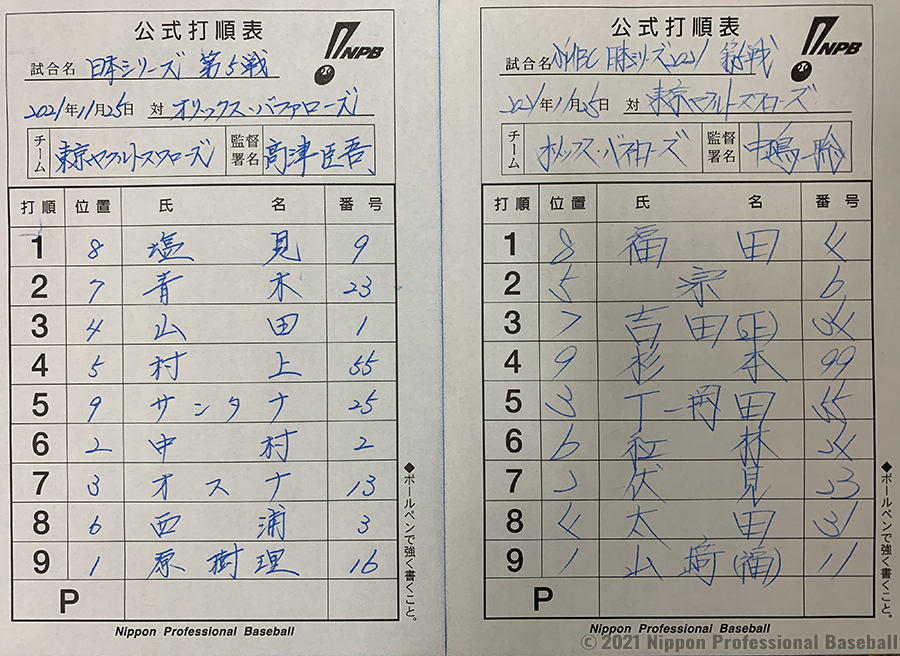 公式打順表
NPB
試合名 日本シリーズ 第5戦
2021年11月25日 対 オリックス・バファローズ
チーム 東京ヤクルトスワローズ 監督署名 高津臣吾
打順 位置 氏名 番号
1 8 塩見 9
2 7 青木 23
3 4 山田 1
4 5 村上 55
5 9 サンタナ 25
6 2 中村 2
7 3 オスナ 13
8 6 西浦 3
9 1 原樹理 16
P
◆ボールペンで強く書くこと。
Nippon Professional Baseball
公式打順表
NPB
試合名 SMBC 日本シリーズ2021 第5戦
2021年11月25日 対 東京ヤクルトスワローズ
チーム オリックス・バファローズ 監督署名 中嶋 聡
打順 位置 氏名 番号
1 8 福田 4
2 5 宗 6
3 7 吉田(正) 34
4 9 杉本 99
5 3 T-岡田 55
6 6 紅林 24
7 2 伏見 23
8 4 太田 31
9 1 山﨑(福) 11
P
◆ボールペンで強く書くこと。
Nippon Professional Baseball
© 2021 Nippon Professional Baseball